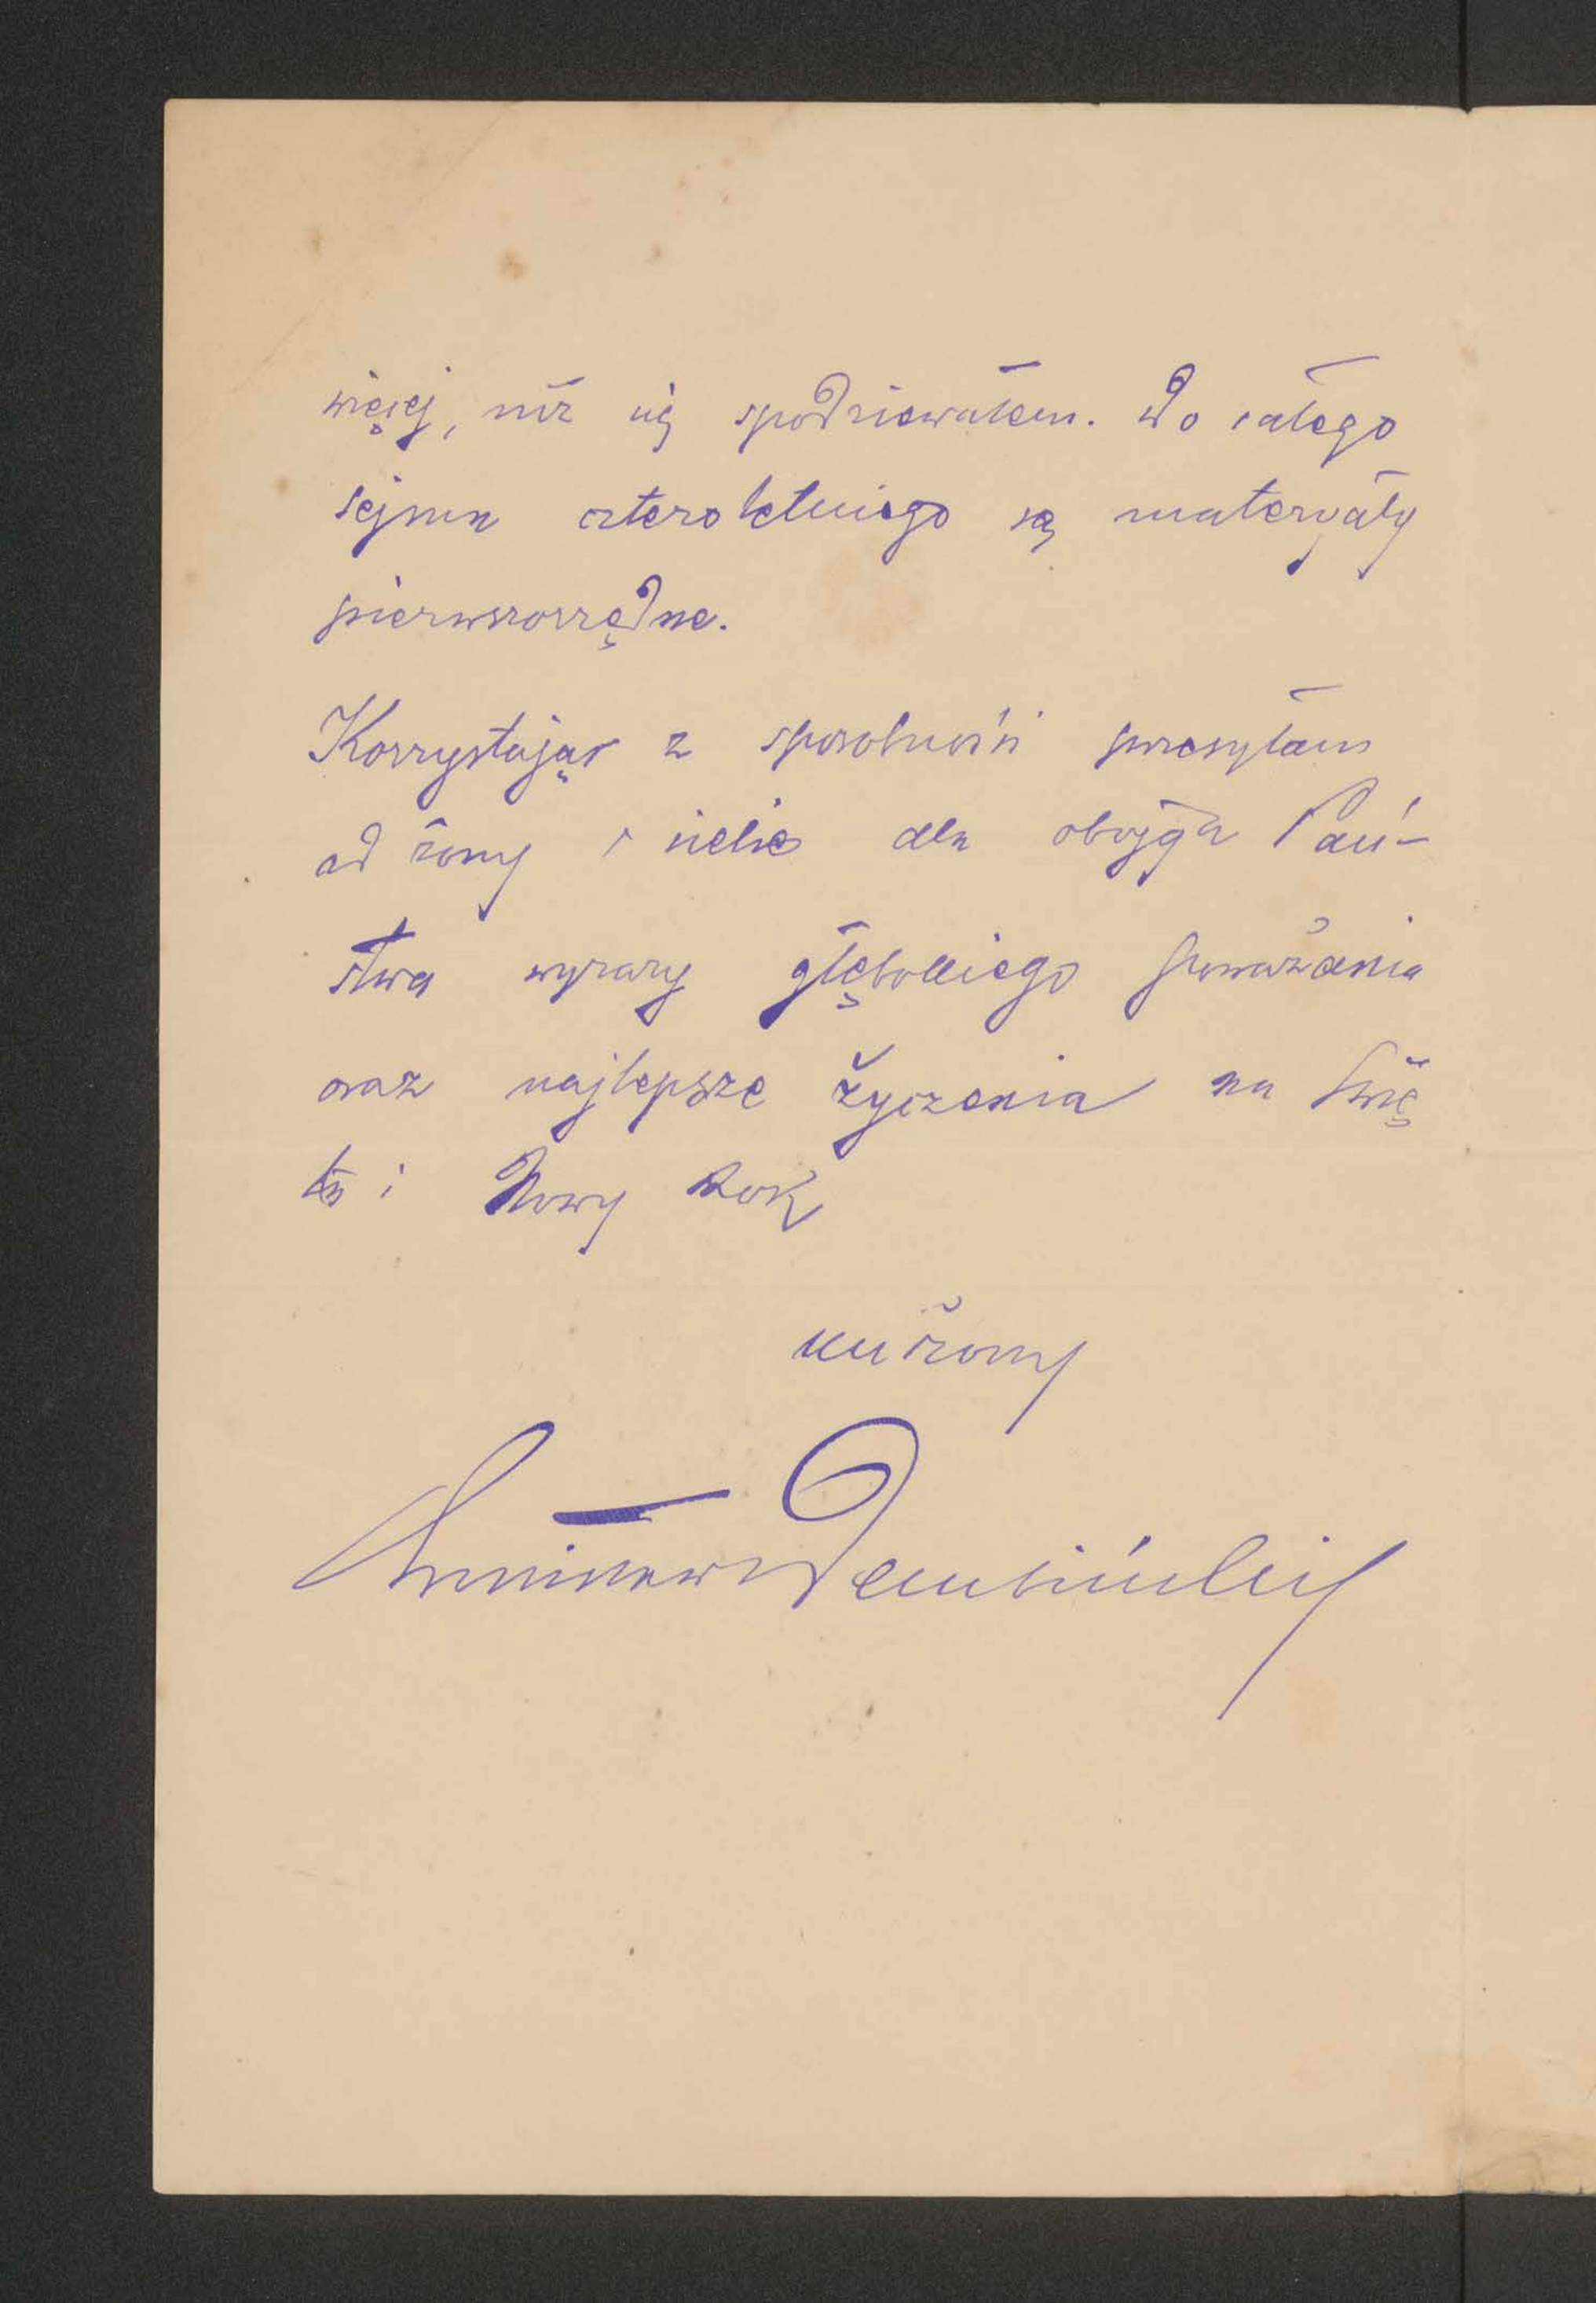 więcej, niż się spodziewałem. Do całego
sejmu czteroletniego są materyały
pierwszorzędne.
Korzystając z sposobności przesyłam
od żony i siebie dla obojga Pań-
stwa wyrazy głębokiego poważania
oraz najlepsze życzenia na Świę
ta i Nowy Rok
uniżony
Bronisław Dembiński